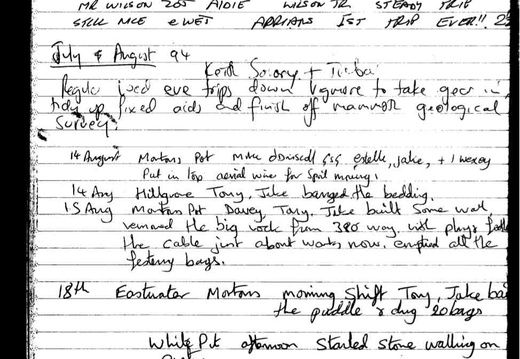 MR WILSON 205 AIDIE WILSON JR. STEADY TRIP
STILL NICE & WET ADRIANS 1ST TRIP EVER!!
July & August 94
Keith Savory +
Regular wed eve trips down Wigmore to take gear in,
tidy up fixed aids and finish off mammoth geological
Survey.
14 August Mortons Pot Mike Estelle, Jake, + 1 wexey
Put in top aerial wire for spoil moving.
14 Aug Hillgrove Tony, Jake banged the bedding.
15 Aug Mortons Pot Davey, Tony, Jake built some wall,
removed the big rock from 380 way, with plugs
the cable just about works now. emptied all the
bags.
18th Eastwater Mortons morning shift Tony, Jake
the puddle & dug 20 bags
White Pit afternoon Started stone walling on